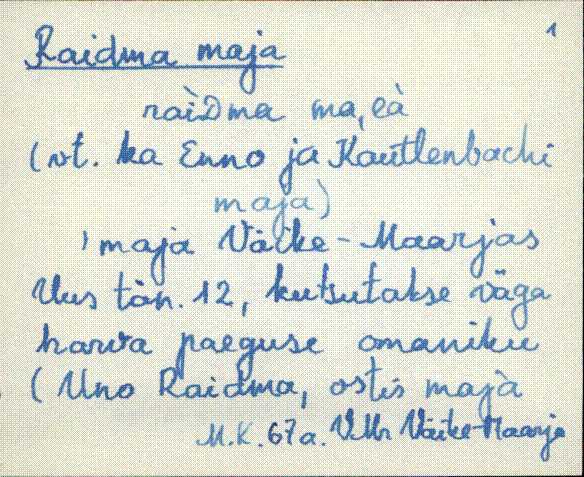 1
Raidma maja
raìDma ma,eà
(vt. ka Enno ja Kautlenbachi
maja)
, maja Väike-Maarjas
Uus tän. 12, kutsutakse väga
harva praeguse omaniku
( Uno Raidma, ostis maja
M.K. 67a. VMr Väike-Maarja